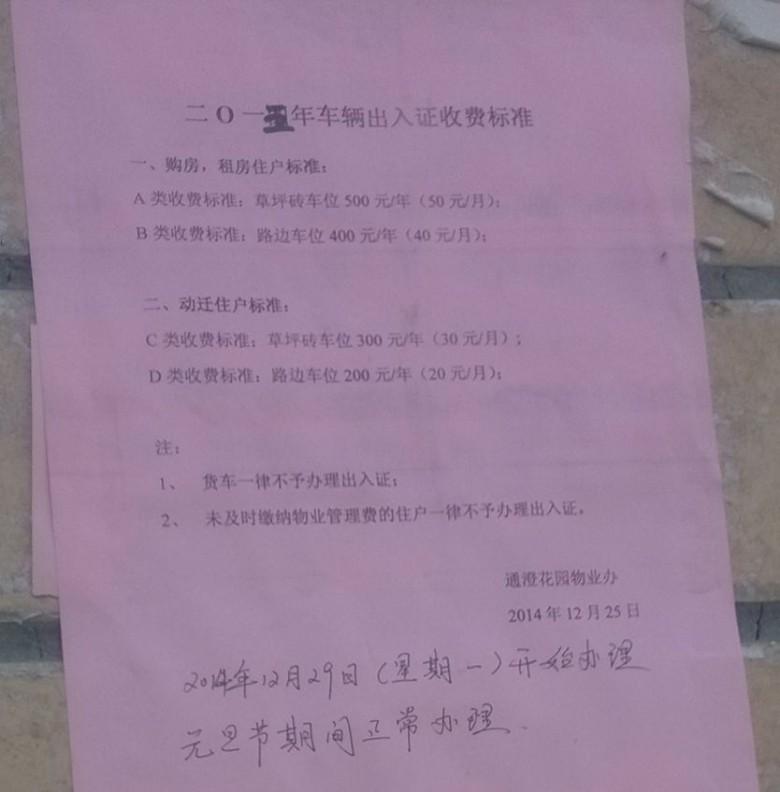 二O一五年车辆出入证收费标准
一、购房，租房住户标准：
A 类收费标准：草坪砖车位 500 元/年（50 元/月）；
B 类收费标准：路边车位 400 元/年（40 元/月）；
二、动迁住户标准：
C 类收费标准：草坪砖车位 300 元/年（30 元/月）；
D 类收费标准：路边车位 200 元/年（20 元/月）；
注：
1、 货车一律不予办理出入证；
2、 未及时缴纳物业管理费的住户一律不予办理出入证。
通澄花园物业办
2014 年 12 月 25 日
2014年12月29日（星期一）开始办理
元旦节期间正常办理.